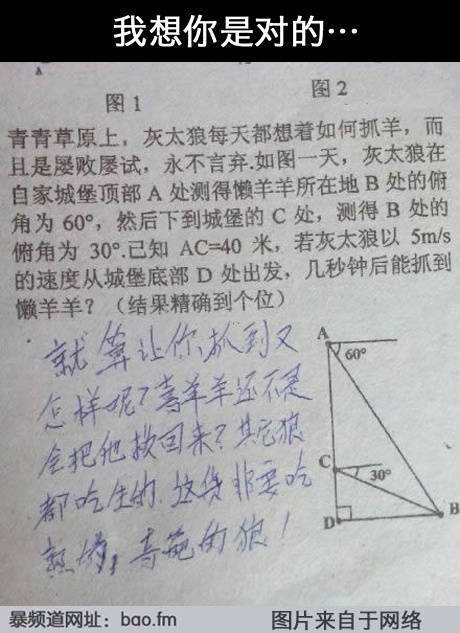 我想你是对的…
图1
图2
青青草原上，灰太狼每天都想着如何抓羊，而
且是屡败屡试，永不言弃.如图一天，灰太狼在
自家城堡顶部 A 处测得懒羊羊所在地 B 处的俯
角为 60°，然后下到城堡的 C 处，测得 B 处的
俯角为 30°.已知 AC=40 米，若灰太狼以 5m/s
的速度从城堡底部 D 处出发，几秒钟后能抓到
懒羊羊？（结果精确到个位）
就算让你抓到又
怎样呢？喜羊羊还不是
会把他救回来？其它狼
都吃生的，这货非要吃
熟的，奇葩的狼！
A
60°
C
30°
D
B
暴频道网址：bao.fm
图片来自于网络